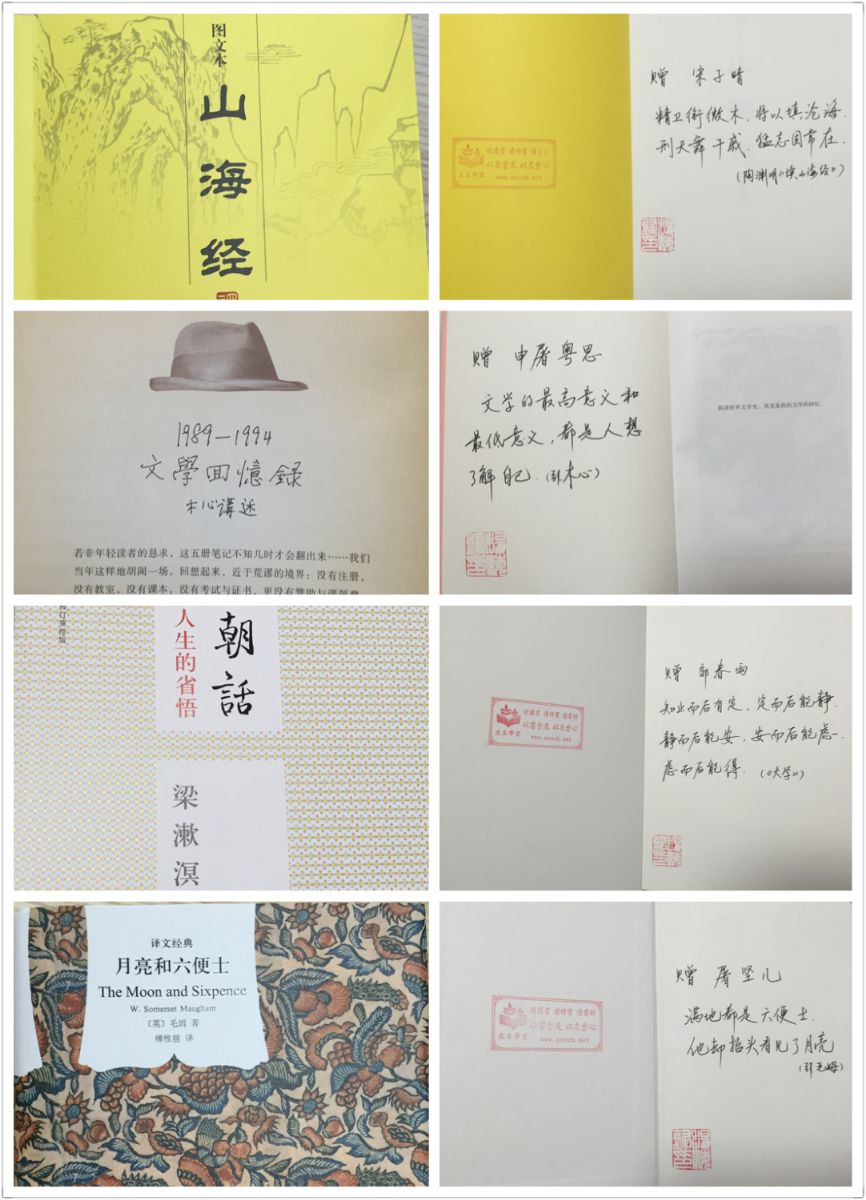 图文本
山海经
赠 宋子晴
精卫衔微木,将以填沧海.
刑天舞干戚,猛志固常在.
(陶渊明《读山海经》)
好读书 读好书 读书好
以书会友 以友会心
生生学堂 www.sosch.net
1989—1994
文學回憶録
木心講述
若非年轻读者的恳求,这五册笔记不知几时才会翻出来……我们
当年这样地胡闹一场,回想起来,近于荒谬的境界:没有注册,
没有教室,没有课本,没有考试与证书,更没有赞助与课题费
赠 申屠粤思
文学的最高意义和
最低意义,都是人想
了解自己.(木心)
我讲世界文学史,其实是我的文学的回忆.
修订重排版
朝話
人生的省悟
梁漱溟
赠 邹春雨
知止而后有定,定而后能静.
静而后能安,安而后能虑.
虑而后能得.(《大学》)
好讀書 讀好書 讀書好
以書會友 以友會心
生生學堂 www.sosch.net
译文经典
月亮和六便士
The Moon and Sixpence
W. Somerset Maugham
〔英〕毛姆 著
傅惟慈 译
赠 屠坚儿
满地都是六便士.
他却抬头看见了月亮
(毛姆)
好讀書 讀好書 讀書好
以書會友 以友會心
生生學堂 www.sosch.net